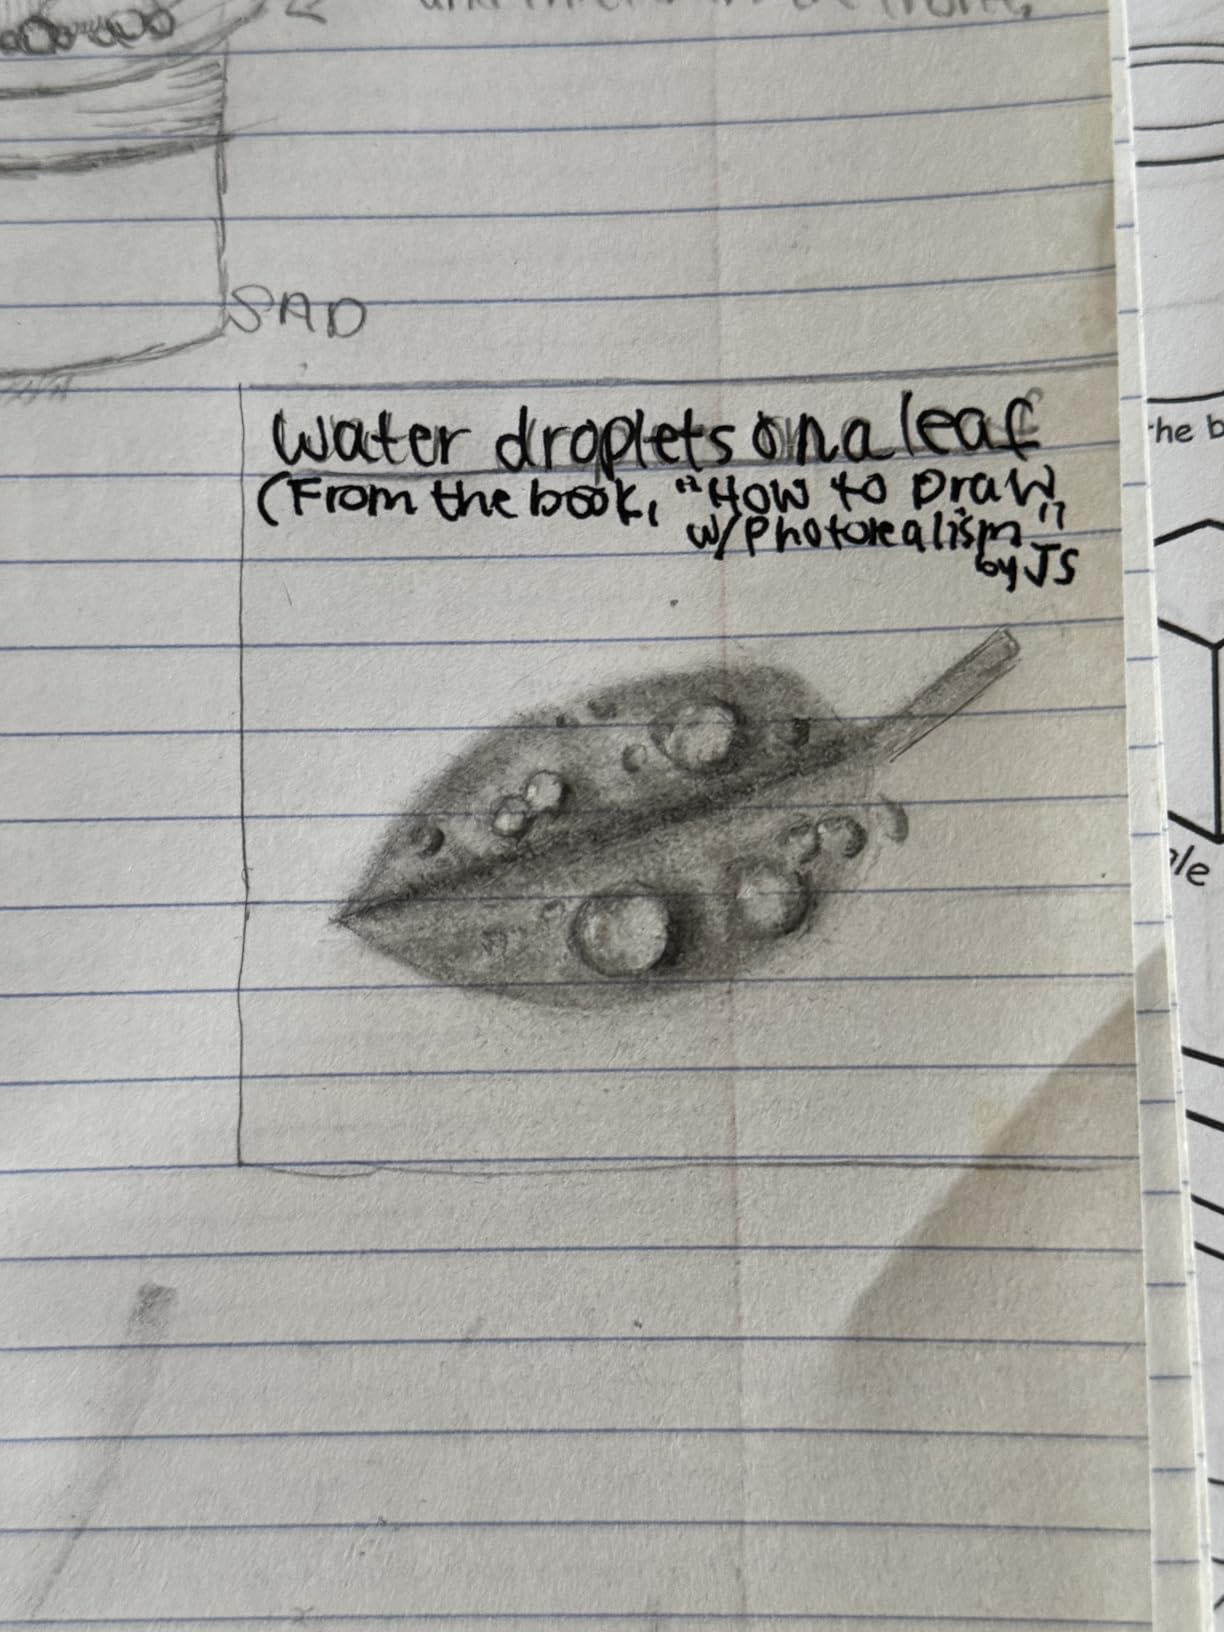 SAD
Water droplets on a leaf
(From the book, "How to Draw
w/Photorealism"
by JS
he b
le